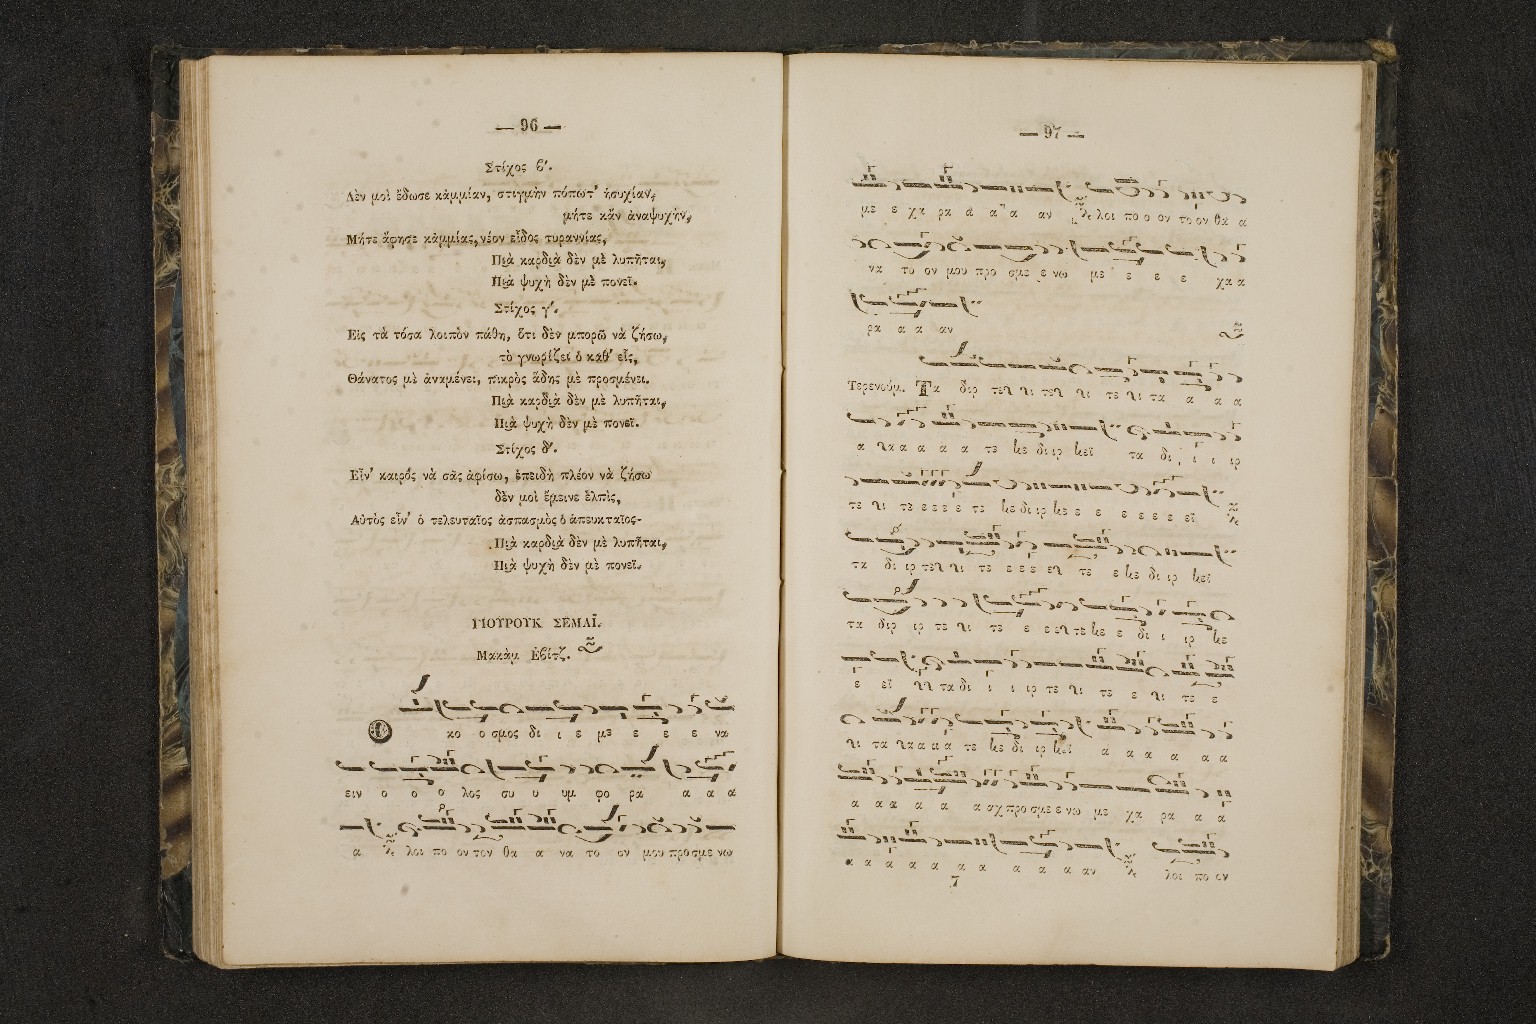 — 96 —
Στίχος β'.
Δὲν μοὶ ἔδωσε κἀμμίαν, στιγμὴν πόπωτ' ἡσυχίαν,
μήτε κἂν ἀναψυχὴν,
Μήτε ἄφησε κἀμμίας, νέον εἶδος τυραννίας,
Πιὰ καρδιὰ δὲν μὲ λυπῆται,
Πιὰ ψυχὴ δὲν μὲ πονεῖ.
Στίχος γ'.
Εἰς τὰ τόσα λοιπὸν πάθη, ὅτι δὲν μπορῶ νὰ ζήσω,
τὸ γνωρίζει ὁ καθ' εἷς,
Θάνατος μὲ ἀναμένει, πικρὸς ᾅδης μὲ προσμένει.
Πιὰ καρδιὰ δὲν μὲ λυπῆται,
Πιὰ ψυχὴ δὲν μὲ πονεῖ.
Στίχος δ'.
Εἶν' καιρὸς νὰ σᾶς ἀφίσω, ἐπειδὴ πλέον νὰ ζήσω
δὲν μοὶ ἔμεινε ἐλπὶς,
Αὐτὸς εἶν' ὁ τελευταῖος ἀσπασμὸς ὁ ἀπευκταῖος.
Πιὰ καρδιὰ δὲν μὲ λυπῆται,
Πιὰ ψυχὴ δὲν μὲ πονεῖ.
ΓΙΟΥΡΟΥΚ ΣΕΜΑΪ.
Μακὰμ Ἐβίτζ.
Ο κο ο σμος δι ι ε με ε ε ε να
ειν ο ο ο λος συ υ υμ φο ρα α α α
α λοι πο ον τον θα α να το ον μου προσμε νω
— 97 —
με ε χα ρα α α α αν λοι πο ο ον το ον θα α
να το ον μου προ σμε ε νω με ε ε ε χα α
ρα α α αν
Τερενούμ. Τα διρ τεν νι τεν νι τε νι τα α α α
α να α α α α τε κε δι ιρ κεϊ τα δι ι ι ιρ
τε νι τε ε ε ε ε τε κε δι ιρ κε ε ε ε ε ε ε εϊ
τα δι ιρ τεν νι τε ε ε ε εν τε ε κε δι ιρ κεϊ
τα διρ ιρ τε νι τε ε ε εν τε κε ε δι ι ιρ κε
ε εϊ νι τα δι ι ι ιρ τε νι τε ε νι τε ε
νι τα να α ι α τε κε δι ιρ κεϊ α α α α α α
α α α α α α αχ προ σμε ε νω με χα ρα α α
α α α α α α α α α α α αν λοι πο ον
7